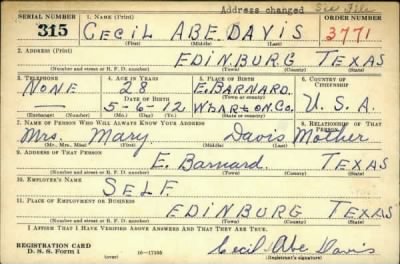 Address changed See File
SERIAL NUMBER 1. NAME (Print) ORDER NUMBER
315 CECIL ABE DAVIS 3771
(First) (Middle) (Last)
2. ADDRESS (Print)
EDINBURG TEXAS
(Number and street or R. F. D. number) (Town) (County) (State)
3. TELEPHONE 4. AGE IN YEARS 5. PLACE OF BIRTH 6. COUNTRY OF CITIZENSHIP
NONE 28 E. BARNARD.
DATE OF BIRTH (Town)
— 5-6-12 WHARTON.CO. U.S.A.
(Exchange) (Number) (Mo.) (Day) (Yr.) (State or country)
7. NAME OF PERSON WHO WILL ALWAYS KNOW YOUR ADDRESS 8. RELATIONSHIP OF THAT PERSON
Mrs. Mary Davis Mother
(Mr., Mrs., Miss) (First) (Middle) (Last)
9. ADDRESS OF THAT PERSON
E. Barnard TEXAS
(Number and street or R. F. D. number) (Town) (County) (State)
10. EMPLOYER'S NAME
SELF
11. PLACE OF EMPLOYMENT OR BUSINESS
EDINBURG TEXAS
(Number and street or R. F. D. number) (Town) (County) (State)
I AFFIRM THAT I HAVE VERIFIED ABOVE ANSWERS AND THAT THEY ARE TRUE.
REGISTRATION CARD
D. S. S. Form 1 (over) Cecil Abe Davis
(Registrant's signature)